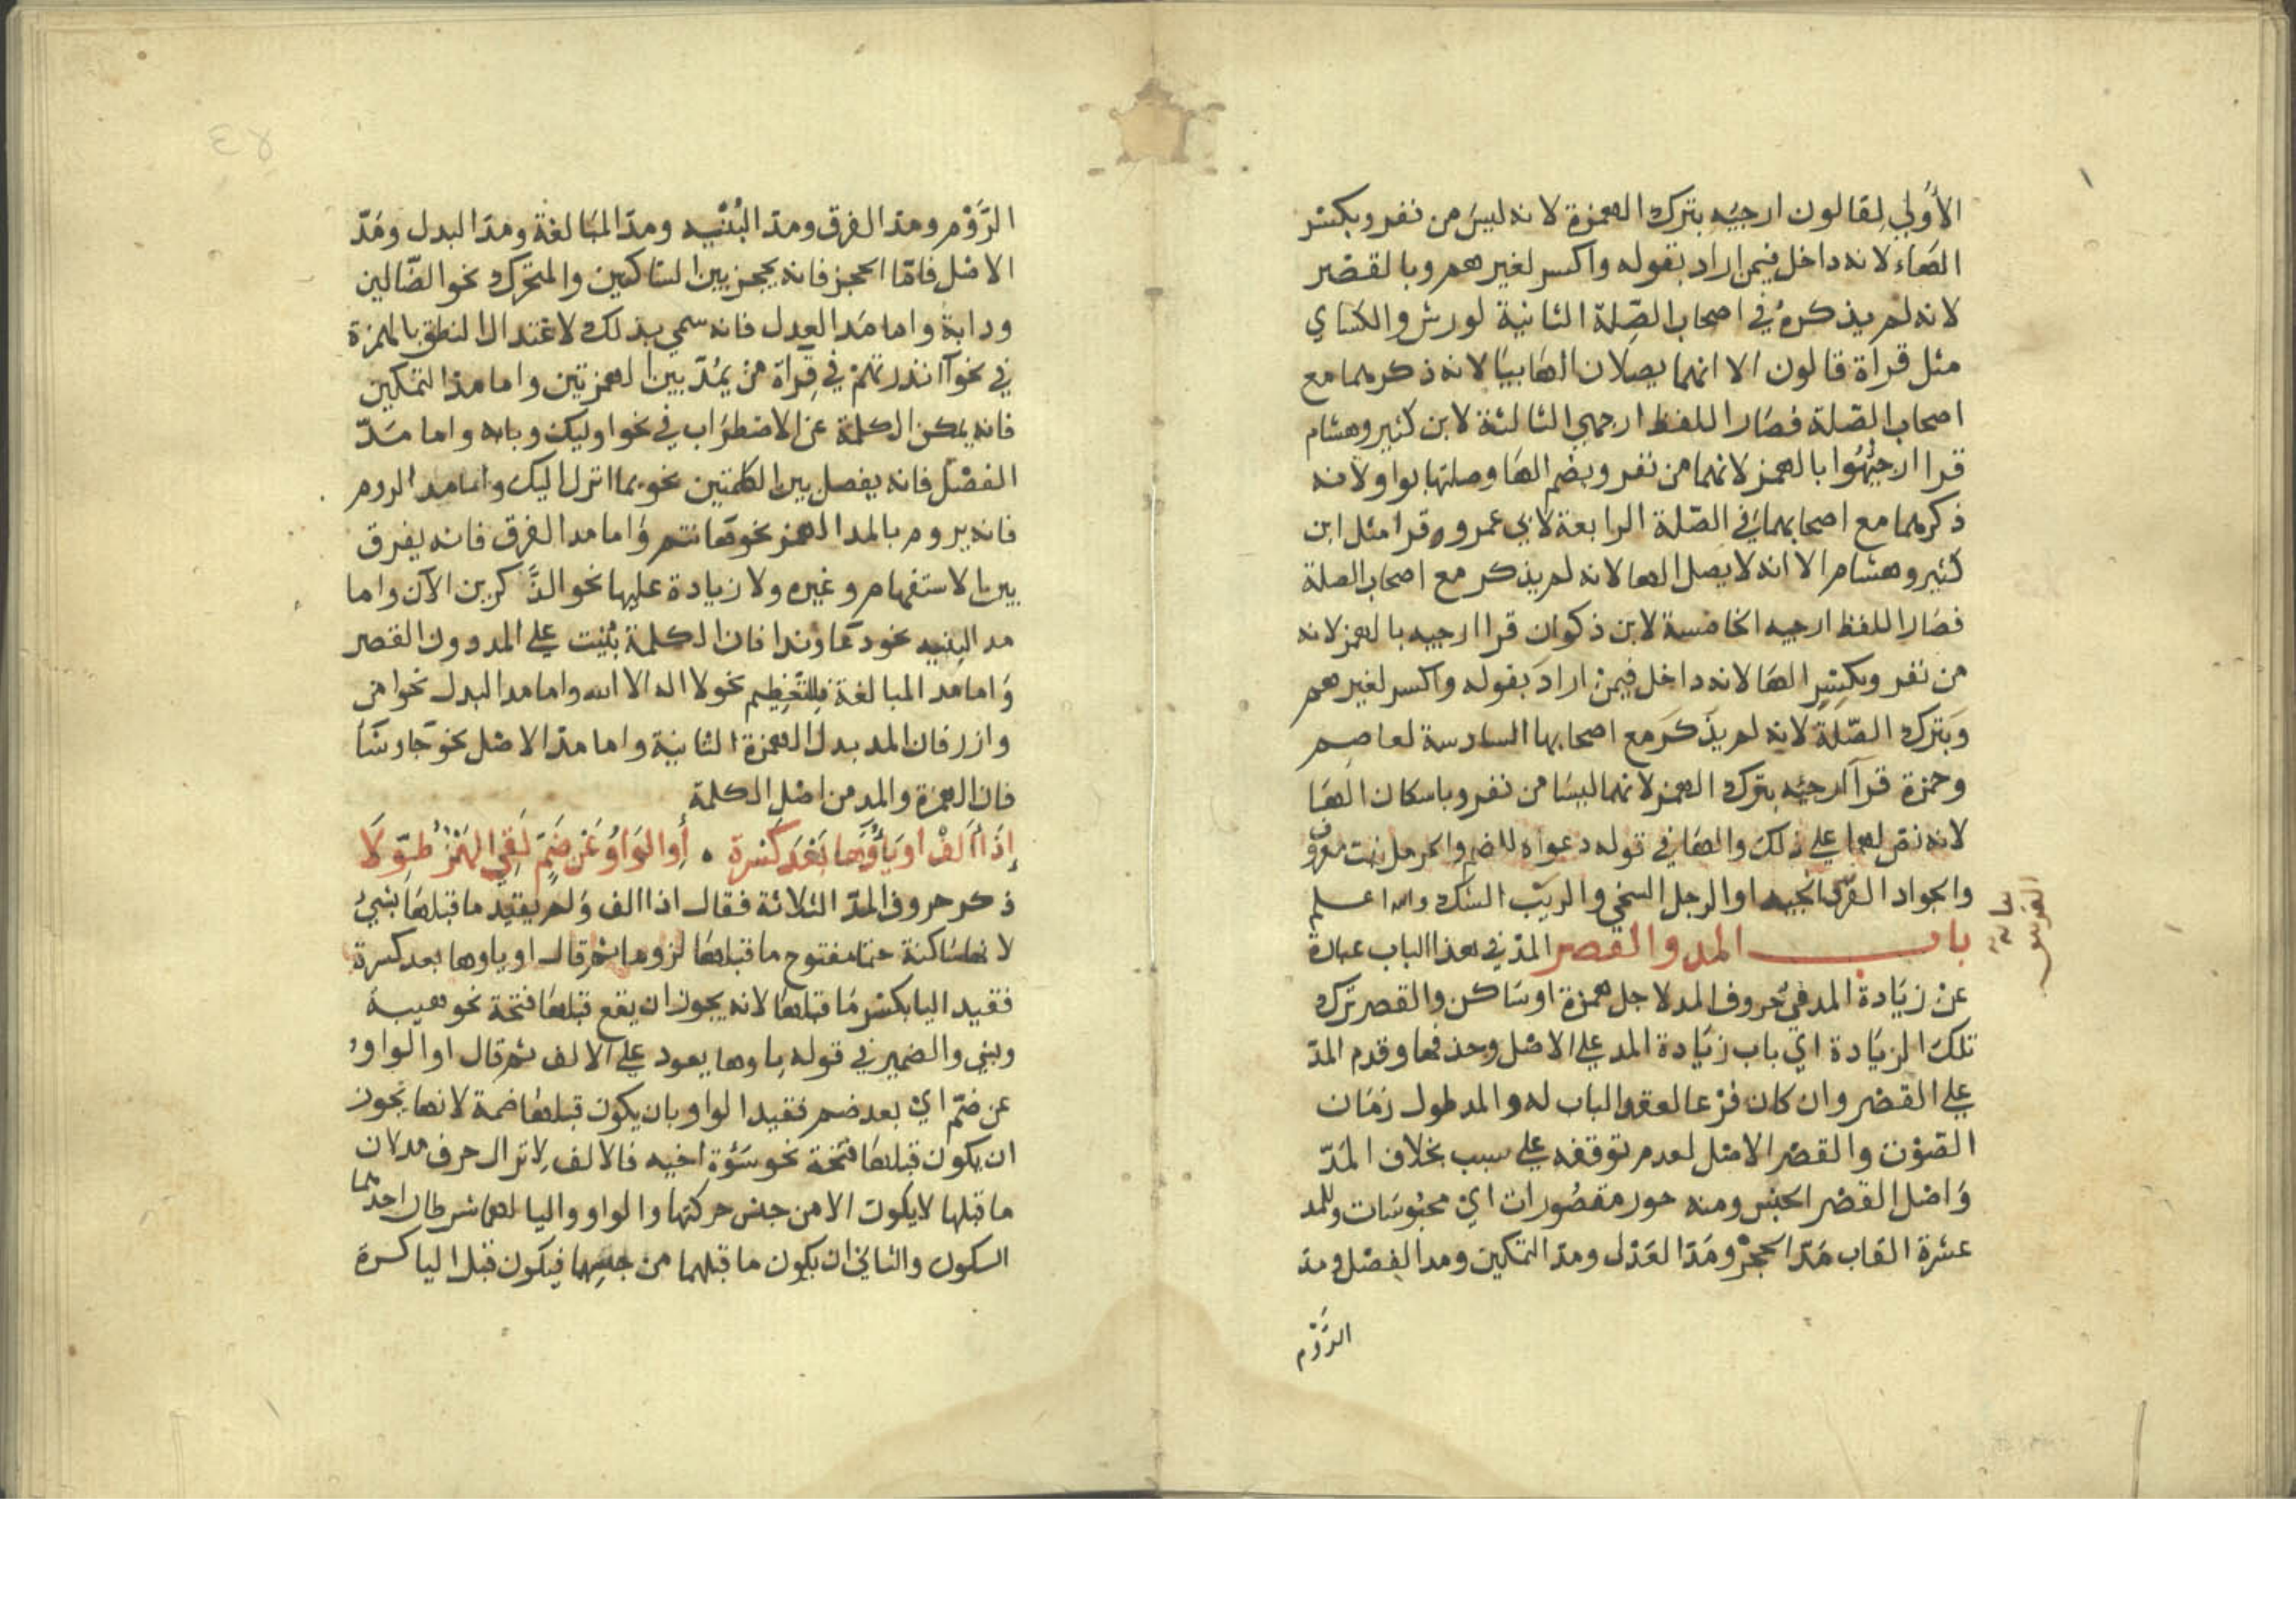 الأولي لقالون ارجيه بترك الهمزة لانه ليس من نفر وبكسر
الهاء لانه داخل فيمن اراد بقوله واكسر لغيرهم وبالقصر
لانه لم يذكره في اصحاب الصلة الثانية لورش والكساي
مثل قراة قالون الا انهما يصلان الها بيا لانه ذكرهما مع
اصحاب الصلة فصار اللفظ ارجهي الثالثة لابن كثير وهشام
قرا ارجئهوا بالهمز لانهما من نفر وبضم الها وصلتها بواو لانه
ذكرهما مع اصحابهما في الصلة الرابعة لابي عمرو وقرا مثل ابن
كثير وهشام الا انه لا يصل الها لانه لم يذكر مع اصحاب الصلة
فصار اللفظ ارجيه الخامسة لابن ذكوان قرا ارجيه بالهمز لانه
من نفر وبكسر الها لانه داخل فيمن اراد بقوله واكسر لغيرهم
وبترك الصلة لانه لم يذكر مع اصحابها السادسة لعاصم
وحمزة قرآ ارجئه بترك الهمز لانهما ليسا من نفر وباسكان الها
لانه نص لهما على ذلك والها في قوله دعواه للضم والحرمل نبت معروف
والجواد الفرس الجيد او الرجل السخي والريب الشك والله اعلم
باب المد والقصر المد في هذا الباب عبارة
عن زيادة المد في حروف المد لاجل همزة او ساكن والقصر ترك
تلك الزيادة اي باب زيادة المد على الاصل وحذفها وقدم المد
على القصر وان كان فرعا لعقد الباب له والمد طول زمان
الصوت والقصر الاصل لعدم توقفه على سبب بخلاف المد
واصل القصر الحبس ومنه حور مقصورات اي محبوسات وللمد
عشرة القاب مد الحجز ومد العدل ومد التمكين ومد الفصل ومد
الروم
الروم ومد الفرق ومد البنيه ومد المبالغة ومد البدل ومد
الاصل فاما الحجز فانه يحجز بين الساكنين والمتحرك نحو الضالين
ودابة واما مد العدل فانه سمي بذلك لاعتدال النطق بالهمزة
في نحو آانذرتهم في قراة من يمد بين الهمزتين واما مد التمكين
فانه يمكن الكلمة عن الاضطراب في نحو اوليك وبابه واما مد
الفصل فانه يفصل بين الكلمتين نحو بما انزل اليك واما مد الروم
فانه يروم بالمد الهمز نحو هانتم واما مد الفرق فانه يفرق
بين الاستفهام وغيره ولا زيادة عليها نحو الذكرين الآن واما
مد البنيه نحو دعا وندا فان الكلمة بنيت على المد دون القصر
واما مد المبالغة فللتعظيم نحو لا اله الا الله واما مد البدل نحو امن
وازر فان المد بدل الهمزة الثانية واما مد الاصل نحو جا وشا
فان الهمزة والمد من اصل الكلمة
إذا ألف او ياؤها بعد كسرة • أو الواو عن ضم لقي الهمز طولا
ذكر حروف المد الثلاثة فقال اذا الف ولم يقيد ما قبلها بشئ
لانها ساكنة حتما مفتوح ما قبلها لزوما ثم قال او ياوها بعد كسرة
فقيد اليا بكسر ما قبلها لانه يجوز ان يقع قبلها فتحة نحو هيبة
وبني والضمير في قوله ياوها يعود على الالف ثم قال او الواو
عن ضم اي بعد ضم فقيد الواو بان يكون قبلها ضمة لانها يجوز
ان يكون قبلها فتحة نحو سوءة اخيه فالالف لا تزال حرف مد لان
ما قبلها لا يكون الا من جنس حركتها والواو واليا لهما شرطان احدهما
السكون والثاني ان يكون ما قبلهما من جنسهما فيكون قبل اليا كسرة